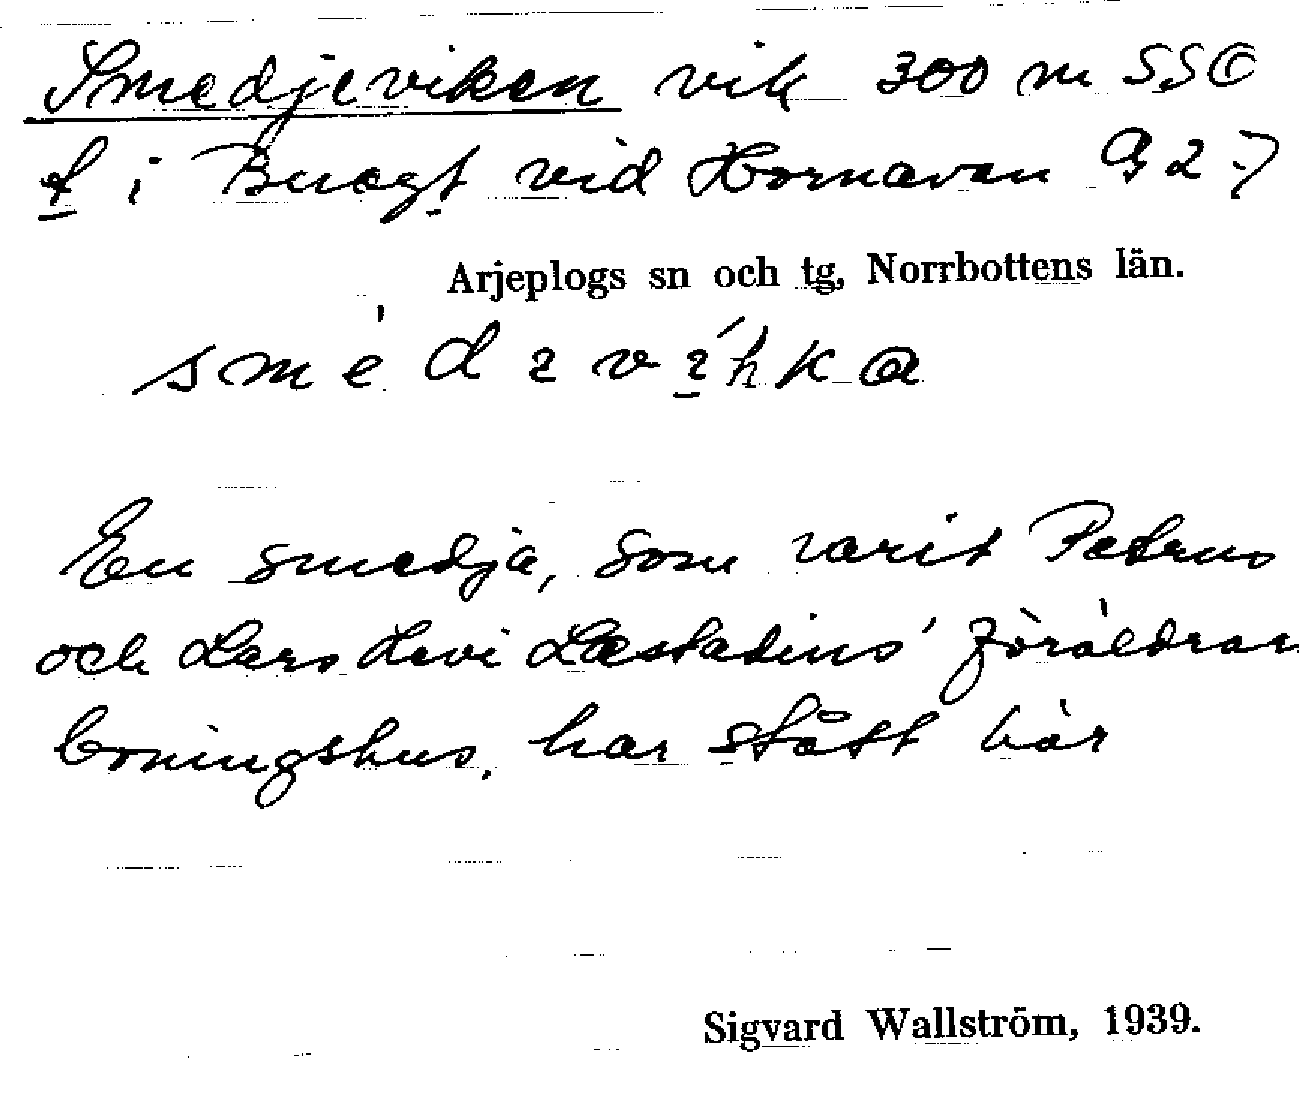 Smedjeviken vik 300 m SSO
f i vid Hornavan G 2
Arjeplogs sn och tg, Norrbottens län.
En smedja, som varit Petrus
och Lars Levi Læstadius' föräldrar
boningshus, har stått här
Sigvard Wallström, 1939.